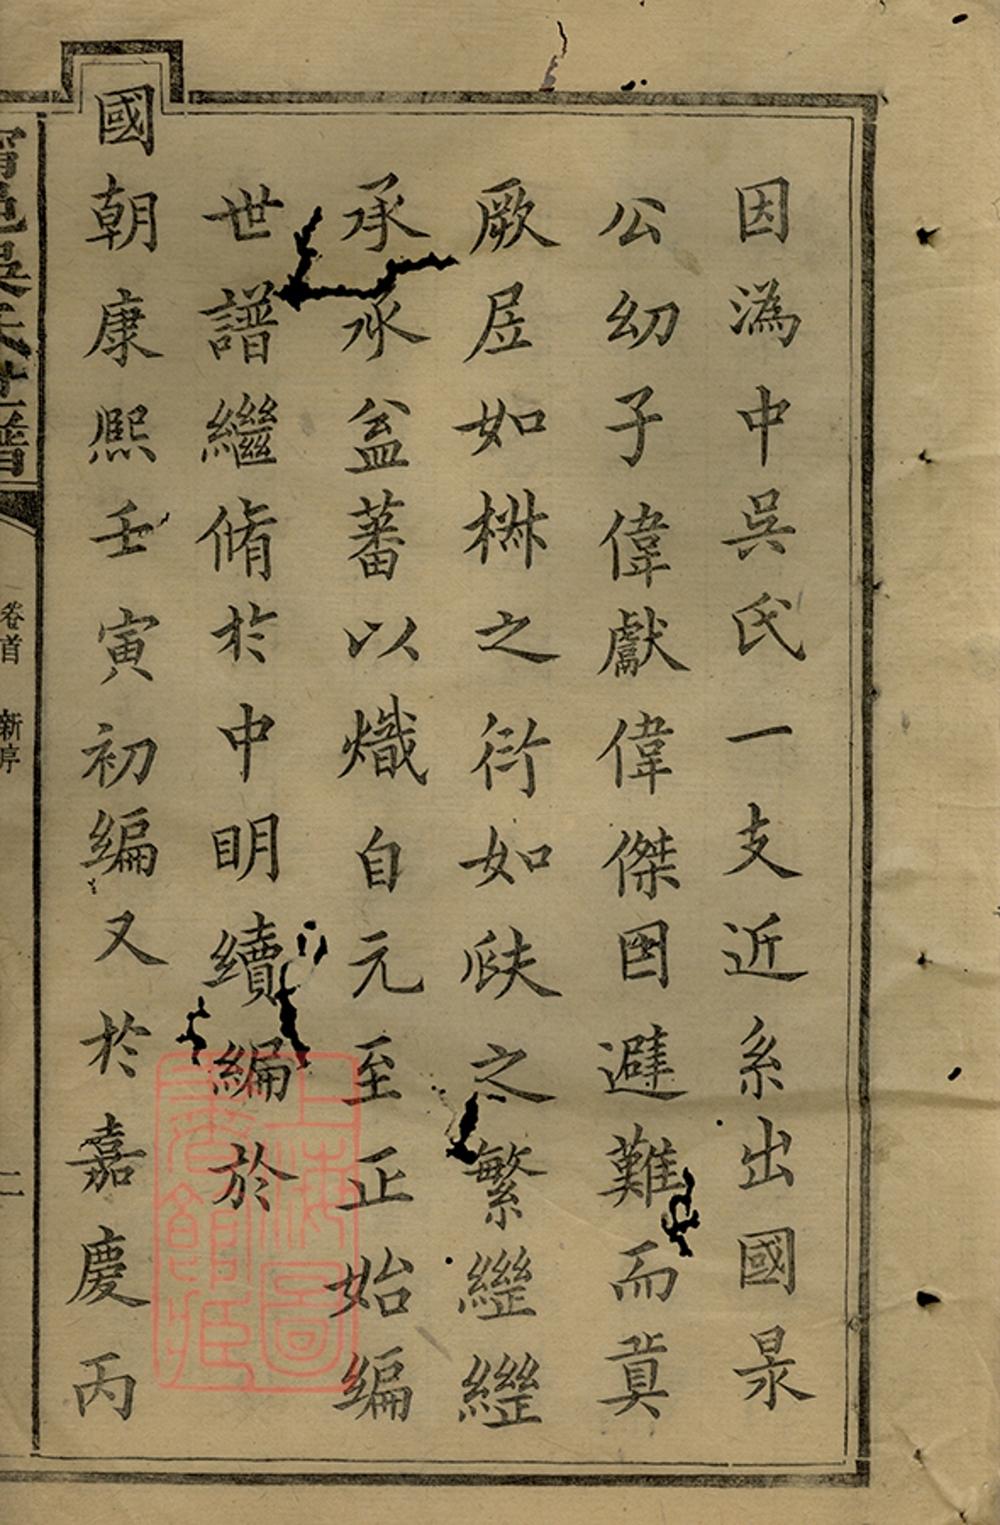 因溈中吳氏一支近系出國
公幼子偉獻偉傑因避難而奠
厥居如椒之衍如瓞之繁繼繼
承承益蕃以熾自元至正始編
世譜繼脩於中明續編於
國朝康熙壬寅初編又於嘉慶丙
甯邑吳氏世譜 卷首 新序 二
上海圖書館藏